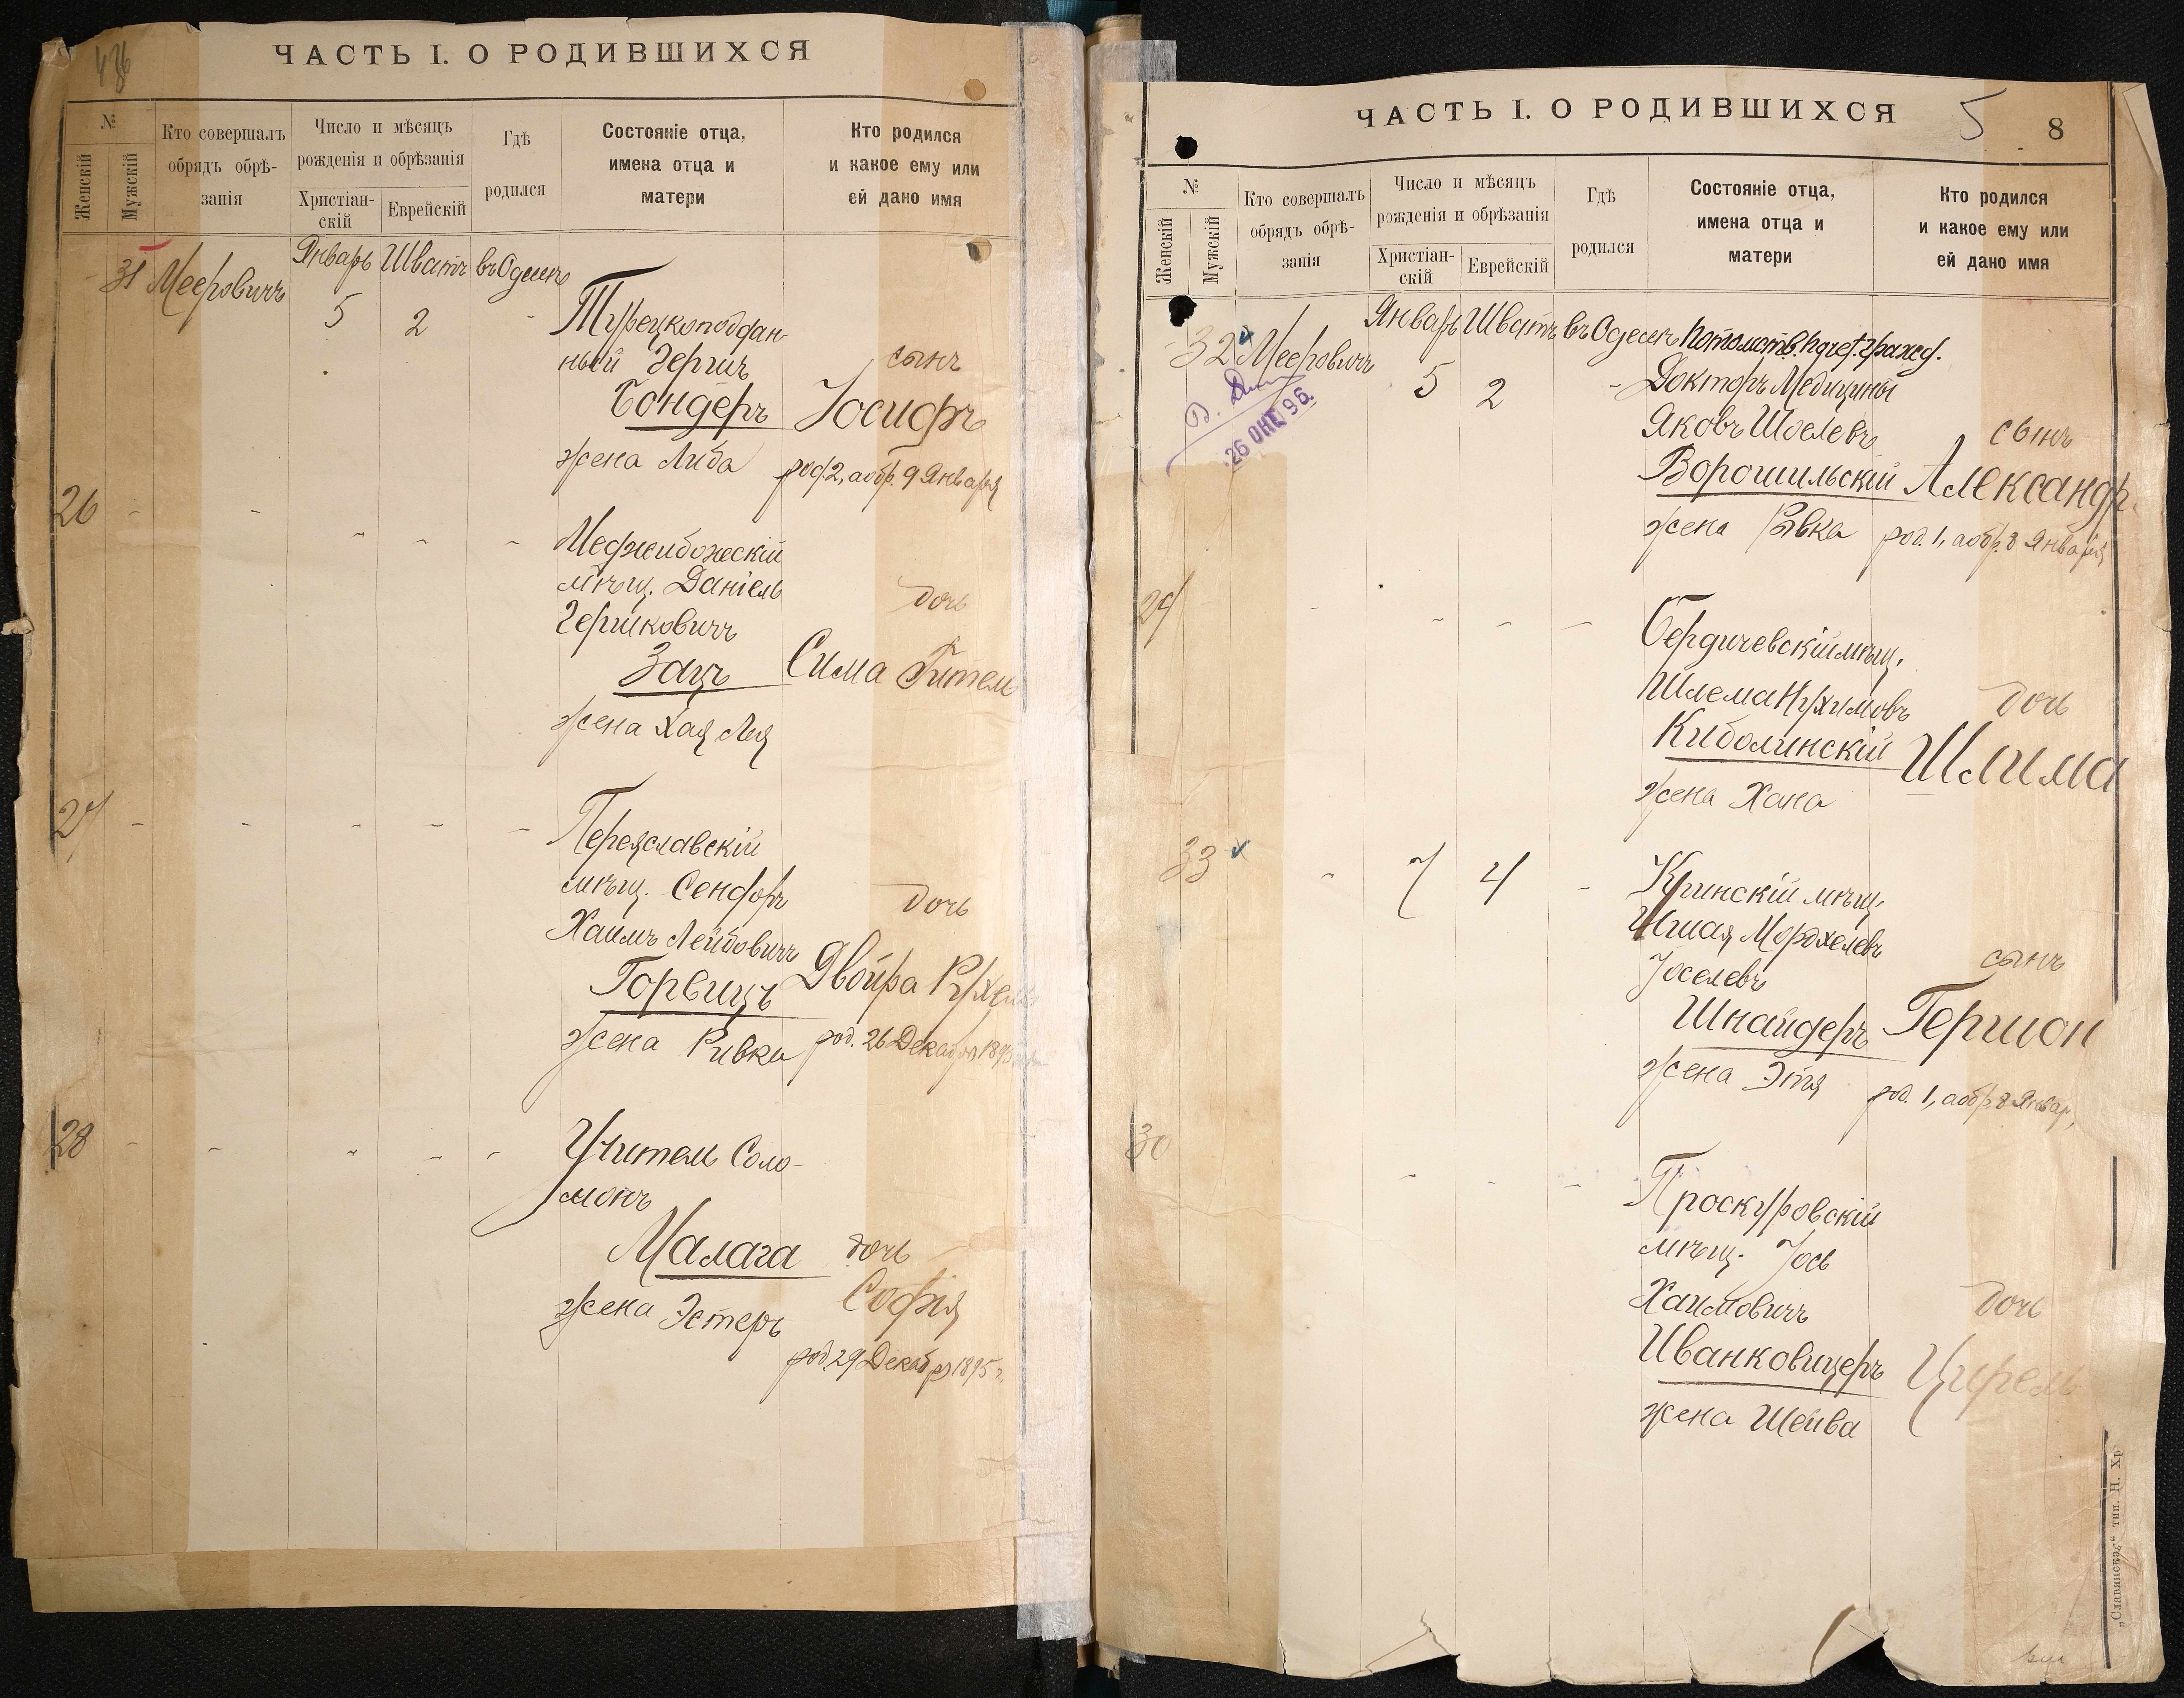 486
ЧАСТЬ I. О РОДИВШИХСЯ
№
Женскій
Мужскій
Кто совершалъ
обрядъ обрѣ-
занія
Число и мѣсяцъ
рожденія и обрѣзанія
Христіан-
скій
Еврейскій
Гдѣ
родился
Состояніе отца,
имена отца и
матери
Кто родился
и какое ему или
ей дано имя
31 Мееровичъ Январь Шватъ въ Одессѣ
5 2 -
Турецкоподдан-
ный Гершъ
Бондеръ
жена Либа
сынъ
Іосифъ
род. 2, а обр. 9 Января
26 - - - - -
Меджибожескій
мѣщ. Даніель
Гершковичъ
Зацъ
жена Хая Лея
дочь
Сима Гитель
27 - - - - -
Переяславскій
мѣщ. Сендоръ
Хаимъ Лейбовичъ
Горвицъ
жена Ривка
дочь
Двойра Рухель
род. 26 Декабря 1895
28 - - - - -
Учитель Соло-
монъ
Малага
жена Эстеръ
дочь
Софія
род. 29 Декабря 1895 г.
ЧАСТЬ I. О РОДИВШИХСЯ
5
8
№
Женскій
Мужскій
Кто совершалъ
обрядъ обрѣ-
занія
Число и мѣсяцъ
рожденія и обрѣзанія
Христіан-
скій
Еврейскій
Гдѣ
родился
Состояніе отца,
имена отца и
матери
Кто родился
и какое ему или
ей дано имя
32 Мееровичъ Январь Шватъ въ Одессѣ
5 2 -
26 ОКТ 96.
потомств. почет. гражд.
Докторъ Медицины
Яковъ Шоелевъ
Ворошильскій
жена Рывка
сынъ
Александр
род. 1, а обр. 8 Января
29 - - - - -
Бердичевскій мѣщ.
Шлема Нухимовъ
Киболинскій
жена Хана
дочь
Шлима
33 - 7 4 -
Кринскій мѣщ.
Ишая Мордхелевъ
Іоселевъ
Шнайдеръ
жена Этя
сынъ
Гершон
род. 1, а обр. 8 Январ,
30 - - -
Проскуровскій
мѣщ. Іось
Хаимовичъ
Иванковицеръ
жена Шейва
дочь
Цирель
„Славянская“ тип. Н. Хр